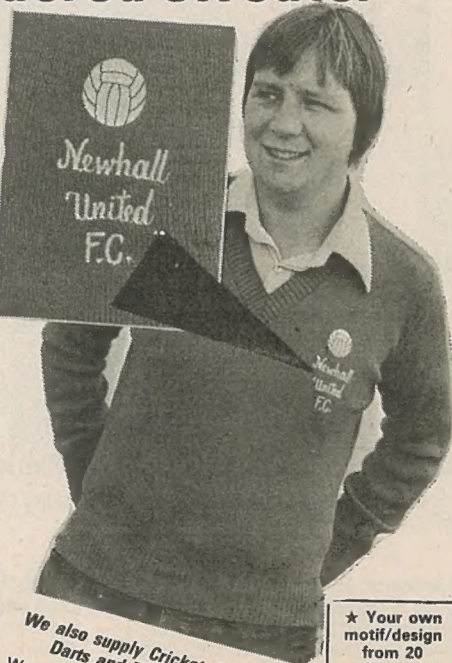 Newhall
United
F.C.
Newhall
United
F.C.
We also supply
Darts and
★ Your own
motif/design
from 20